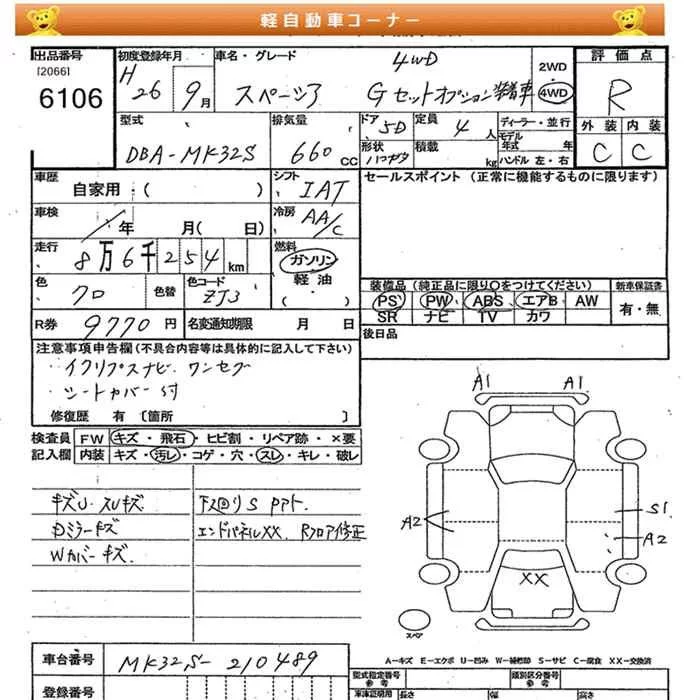 軽自動車コーナー
出品番号 初度登録年月 車名・グレード 4WD 2WD 評価点
[2066] H 26 9月 スペーシア Gセットオプション装着車 4WD R
6106
型式 排気量 ドア 5D 定員 4人 ディーラー・並行 外装 内装
モデル年式 年
DBA-MK32S 660cc 形状 ハコガタ 積載 kg ハンドル 左・右 C C
車歴 自家用・( ) シフト IAT セールスポイント(正常に機能するものに限ります)
車検 年 月( 日) 冷房 AA/C
走行 8万6千254km 燃料 ガソリン
軽油
( )
色 クロ 色替 色コード ZJ3
装備品(純正品に限り○をつけてください) 新車保証書
PS PW ABS エアB AW 有・無
SR ナビ TV カワ
R券 9770円 名変通知期限 月 日 後日品
注意事項申告欄(不具合内容等は具体的に記入して下さい)
・イクリプスナビ ワンセグ
・シートカバー付
修復歴 有〔箇所 〕
検査員記入欄 FW キズ・飛石・ヒビ割・リペア跡・×要
内装 キズ・汚レ・コゲ・穴・スレ・キレ・破レ
キズU・スリキズ 下回りS Pアト.
Dミラーキズ エンドパネルXX. Rフロア修正
Wカバーキズ.
A1 A1
A2 S1
A2
XX
スペア
A-キズ E-エクボ U-凹み W-補修跡 S-サビ C-腐食 XX-交換済
車台番号 MK32S-210489
登録番号
型式指定番号 参考 類別区分番号 参考
車庫証明用 長さ 幅 高さ